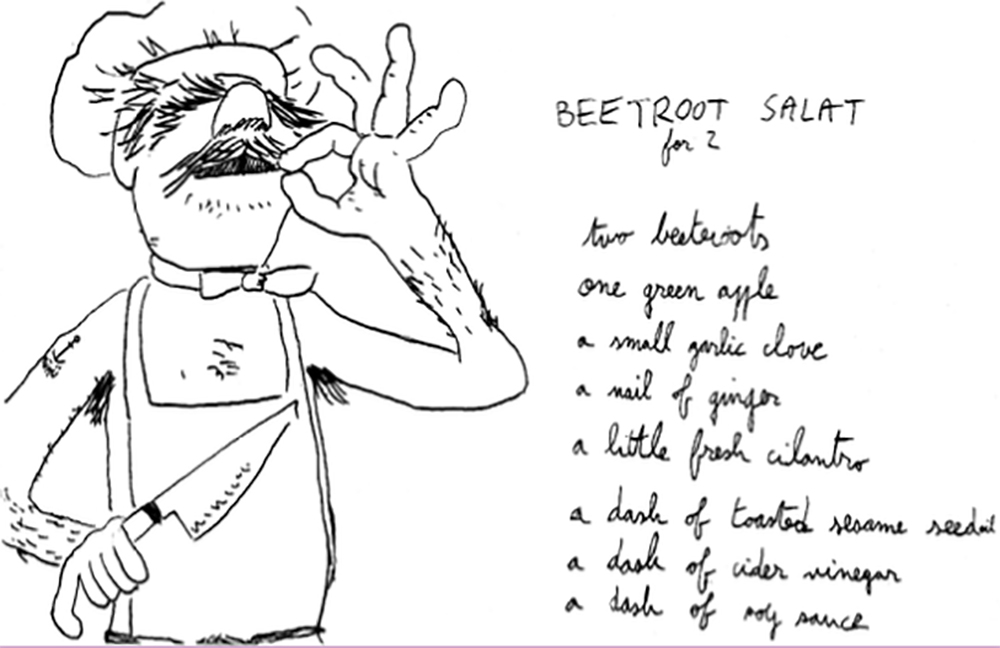 BEETROOT SALAT
for 2
two beetroots
one green apple
a small garlic clove
a nail of ginger
a little fresh cilantro
a dash of toasted sesame seedoil
a dash of cider vinegar
a dash of soy sauce